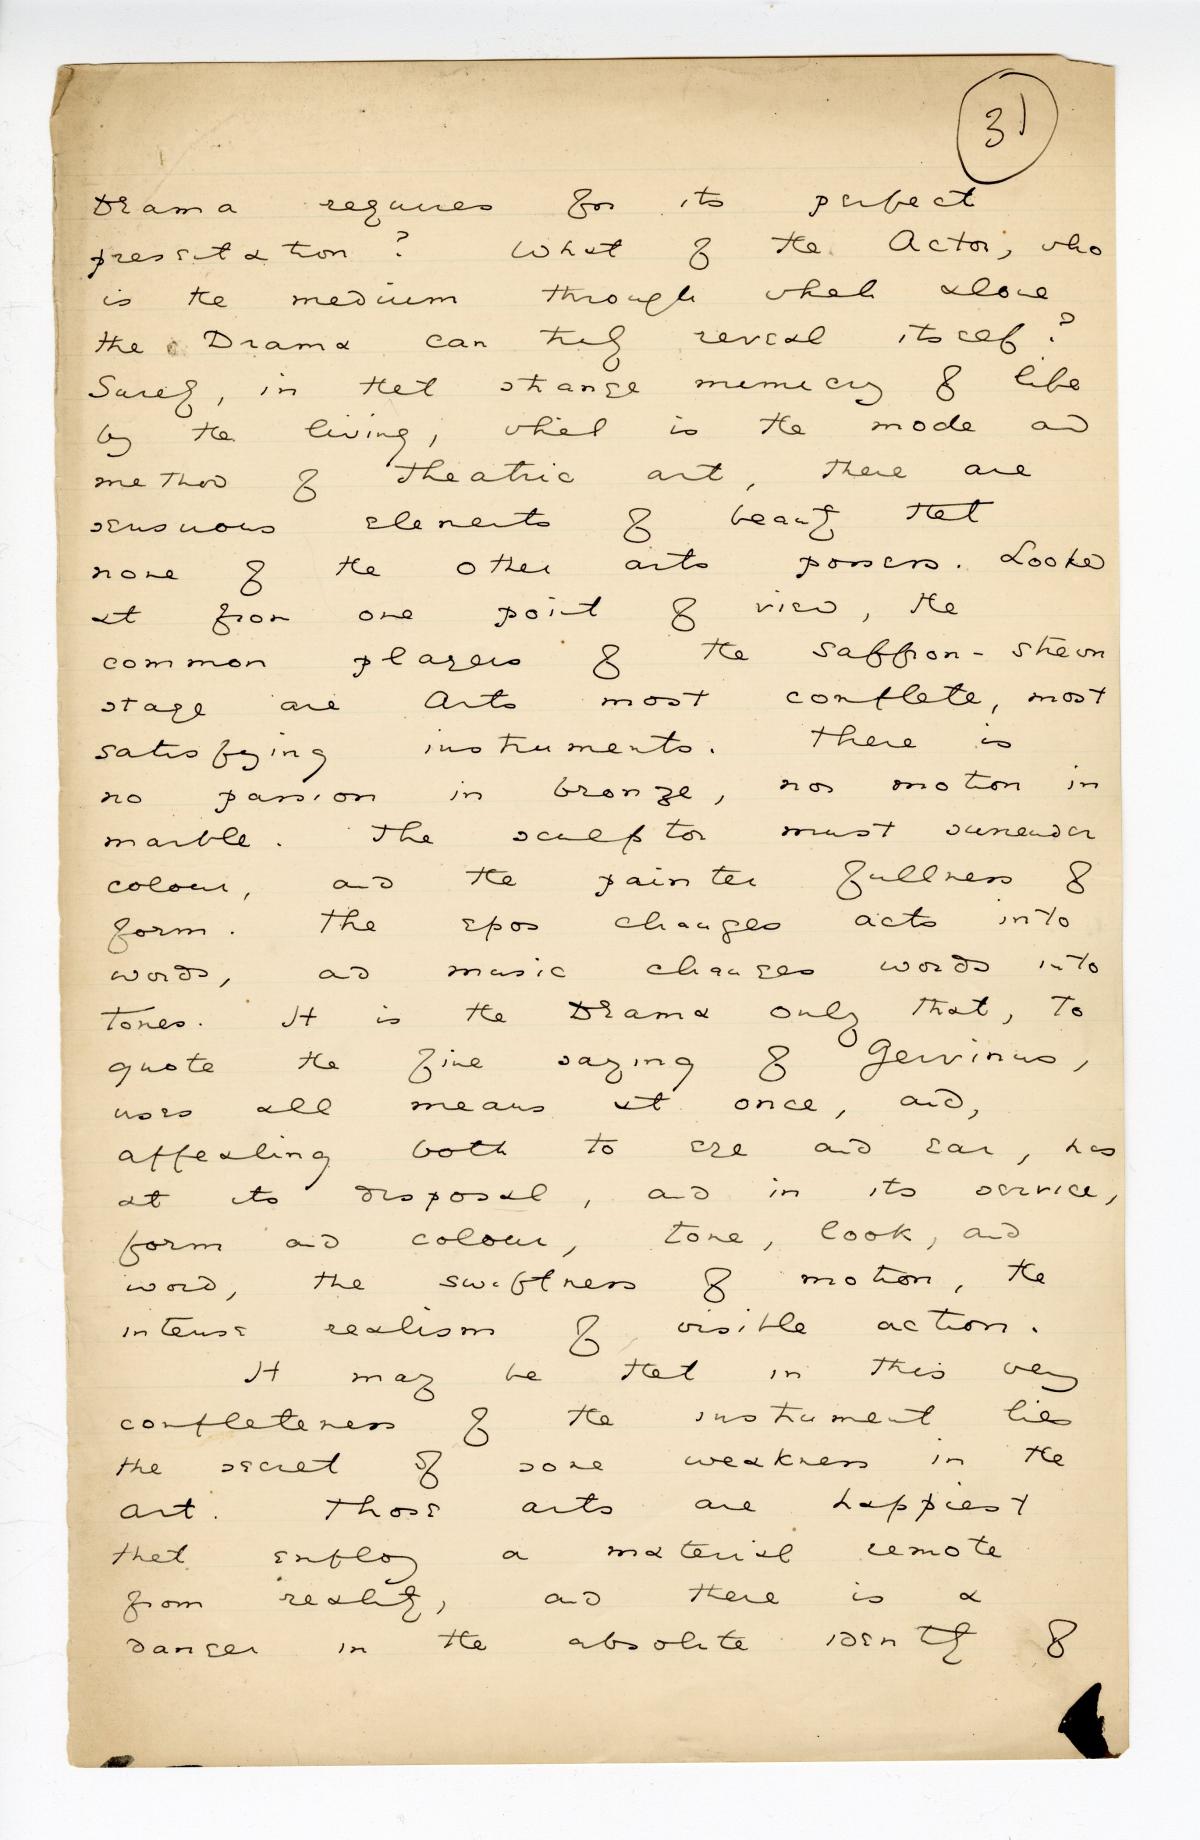 31
Drama requires for its perfect
presentation? What of the Actor, who
is the medium through which alone
the Drama can truly reveal itself?
Surely, in that strange mimicry of life
by the living, which is the mode and
method of theatric art, there are
sensuous elements of beauty that
none of the other arts possess. Looked
at from one point of view, the
common players of the saffron-strewn
stage are Arts most complete, most
satisfying instruments. There is
no passion in bronze, nor motion in
marble. The sculptor must surrender
colour, and the painter fullness of
form. The epos changes acts into
words, and music changes words into
tones. It is the Drama only that, to
quote the fine saying of Gervinus,
uses all means at once, and,
appealing both to eye and ear, has
at its disposal, and in its service,
form and colour, tone, look, and
word, the swiftness of motion, the
intense realism of visible action.
It may be that in this very
completeness of the instrument lies
the secret of some weakness in the
art. Those arts are happiest
that employ a material remote
from reality, and there is a
danger in the absolute identity of